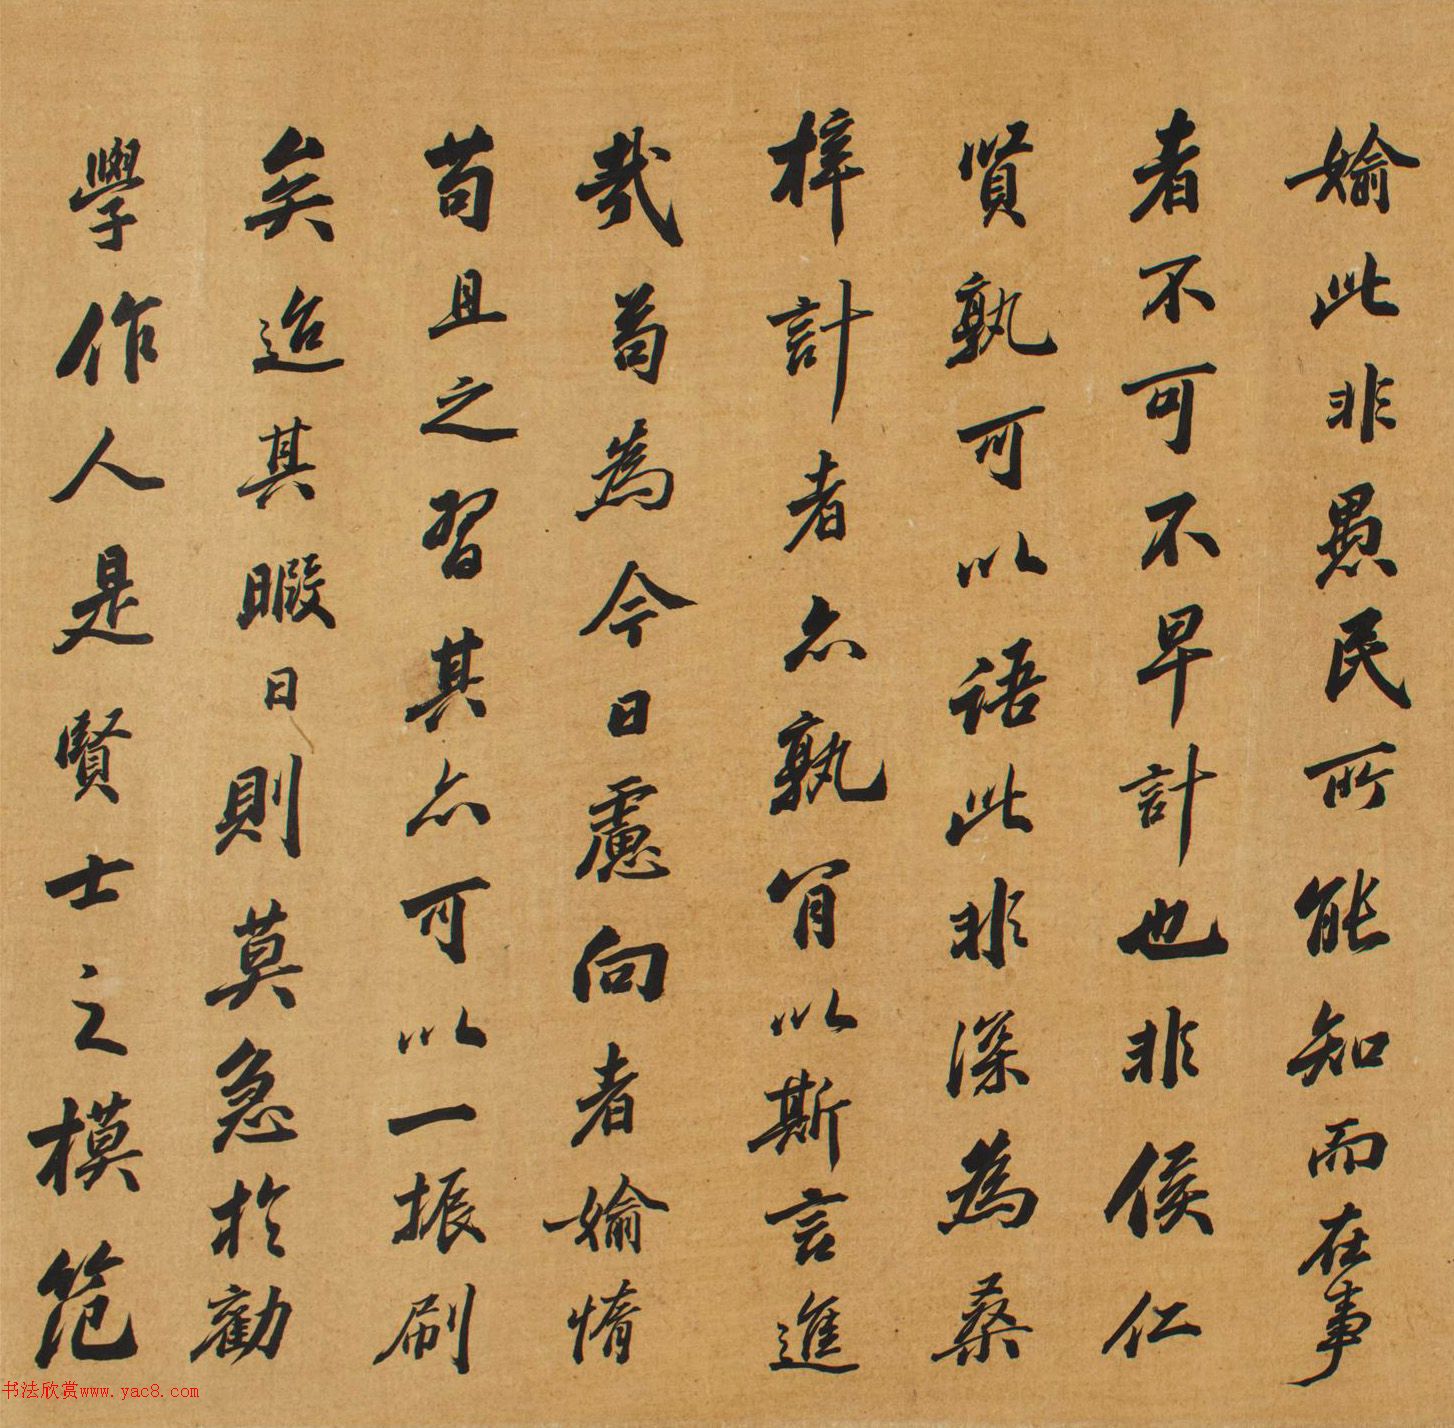 媮此非愚民所能知而在事
者不可不早計也非侯仁
賢孰可以語此非深為桑
梓計者亦孰肎以斯言進
哉苟為今日慮向者媮惰
苟且之習其亦可以一振刷
矣迨其暇日則莫急於勸
學作人是賢士之模范
书法欣赏www.yac8.com